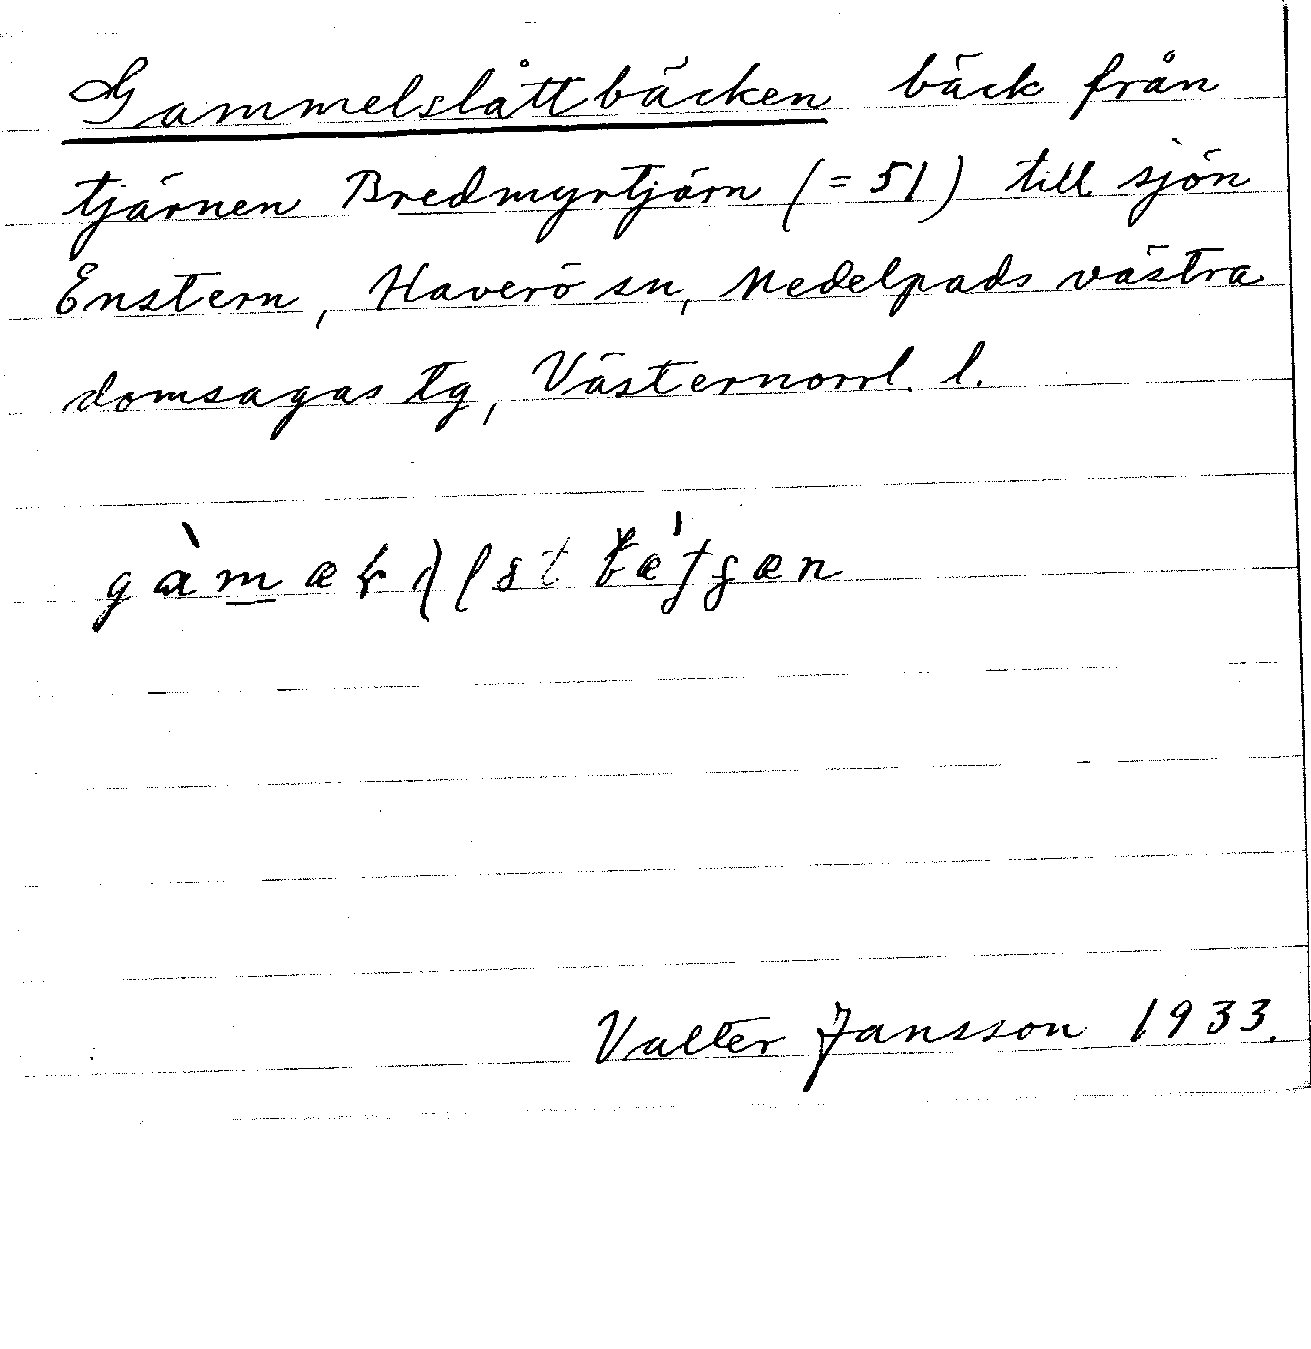 Gammelslåttbäcken bäck från
tjärnen Bredmyrtjärn (= 51) till sjön
Enstern, Haverö sn, Medelpads västra
domsagas tg, Västernorrl. l.
Valter Jansson 1933.